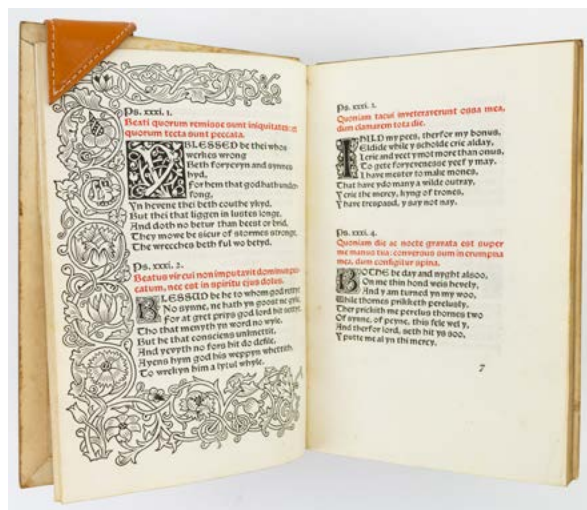 Ps. xxxi. 1.
Beati quorum remisse sunt iniquitates: et
quorum tecta sunt peccata.
Y BLESSED be thei whos
werkes wrong
Beth foryevyn and synnes
hyd,
For hem that god hath under-
fong,
Yn hevene thei beth couthe ykyd.
But thei that liggen in lustes longe,
And doth no betur than beest or brid,
They mowe be sicur of stormes stronge,
The wrecches beth ful wo betyd.
Ps. xxxi. 2.
Beatus vir cui non imputavit dominus pec-
catum, nec est in spiritu ejus dolus.
BLESSAD be he to whom god retteth
No synne, ne hath yn goost ne gyle,
For at gret priys god lord hit setteth
Tho that menyth yn word no wyle.
But he that consciens unknettit,
And yevyth no fors hit do defile,
Ayens hym god his weppyn whettith
To wrekyn him a lytul whyle.
Ps. xxxi. 3.
Quoniam tacui inveteraverunt ossa mea,
dum clamarem tota die.
I HILD my pees, therfor my bonus,
Eldide while y scholde crie alday,
I crie and yeet ymot more than onus,
To gete foryevenesse yeef y may.
I have mester to make mones,
That have ydo many a wilde outray,
Y crie the mercy, kyng of trones,
Y have trespasd, y say not nay.
Ps. xxxi. 4.
Quoniam die ac nocte gravata est super
me manus tua: conversus sum in erumpna
mea, dum configitur spina.
BOTHE be day and nyght alsoo,
On me thin hond weis hevely,
And y am turned yn my woo,
While thornes prikketh perelusly.
Ther prickith me perelus thornes two
Of synne, of peyne, this fele wel y,
And therfor lord, seth hit ys soo,
Y putte me al yn thi mercy.
7